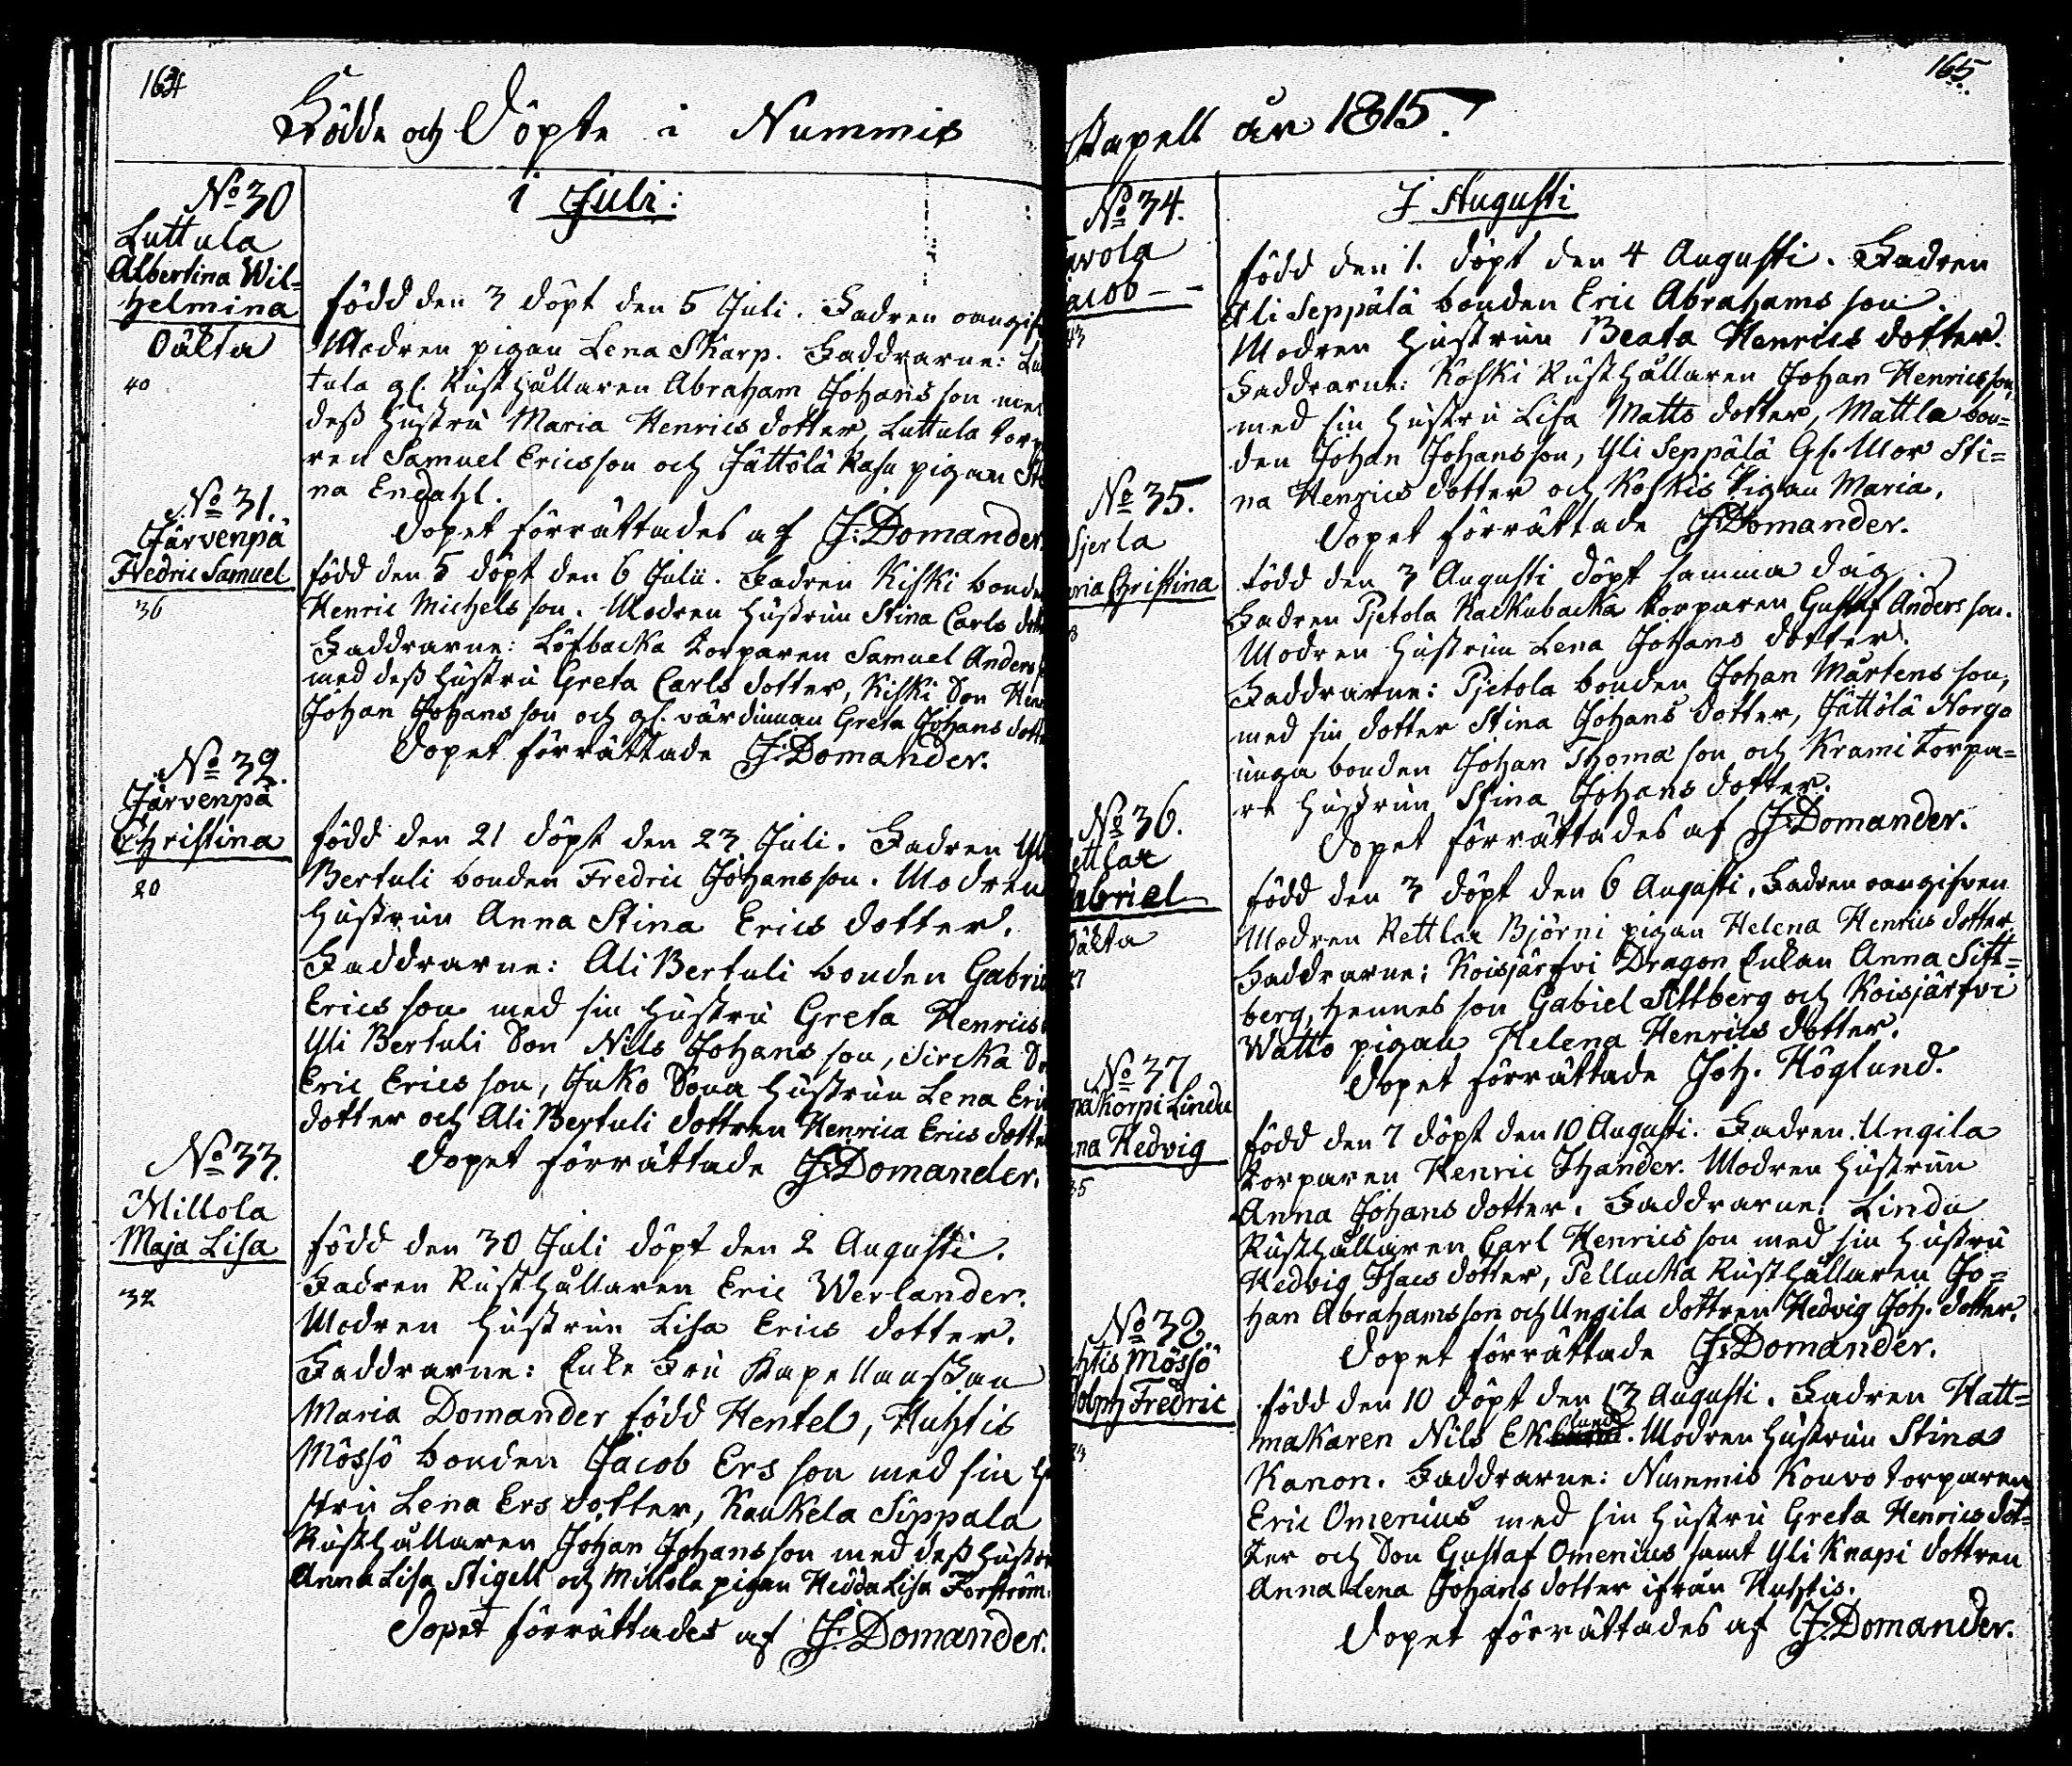 164
Födde och Döpte i Nummis
No 30
Luttula
Albertina Wil=
helmina
Oäkta
40
i Juli:
född den 3 döpt den 5 Juli. Fadren oangif
Modren pigan Lena Skarp. Faddrarne: Lut
tula gl. Rusthållaren Abraham Johansson med
dess hustru Maria Henrics dotter, Luttula torp
ren Samuel Ericsson och Jättölä Rasu pigan Sti
na Endahl.
Dopet förrättades af J. Domander.
No 31.
Järvenpä
Fredric Samuel
36
född den 5 döpt den 6 Julii. Fadren Kiski bonde
Henric Michelsson. Modren hustrun Stina Carls dott
Faddrarne: Löfbacka torparen Samuel Anders
med dess hustru Greta Carls dotter, Kiski Son Hen
Johan Johansson och gl. värdinnan Greta Johans dotte
Dopet förrättade J. Domander.
No 32.
Järvenpä
Christina
20
född den 21 döpt den 23 Juli. Fadren Yli
Bertuli bonden Fredric Johansson. Modren
hustrun Anna Stina Erics dotter.
Faddrarne: Ali Bertuli bonden Gabriel
Ericsson med sin hustru Greta Henrics
Yli Bertuli Son Nils Johansson, Sircka So
Eric Ericsson, Juko Sona hustrun Lena Eric
dotter och Ali Bertuli dottren Henrica Erics dotte
Dopet förrättade J. Domander.
No 33.
Millola
Maja Lisa
32
född den 30 Juli döpt den 2 Augusti.
Fadren Rusthållaren Eric Werlander.
Modren hustrun Lisa Erics dotter.
Faddrarne: Enke Fru Kapellanskan
Maria Domander född Hentel, Huhtis
Mössö bonden Jacob Ersson med sin hu
stru Lena Ers dotter, Kaukela Sippala
Rusthållaren Johan Johansson med dess hustru
Anna Lisa Stigell och Millola pigan Hedda Lisa Forström.
Dopet förrättades af J. Domander.
165
Kapell år 1815.
No 34.
avola
acob
43
I Augusti
född den 1. döpt den 4 Augusti. Fadren
Ali Seppälä bonden Eric Abrahamsson.
Modren hustrun Beata Henrics dotter.
Faddrarne: Koski Rusthållaren Johan Henricsson
med sin hustru Lisa Matts dotter, Mattla bon=
den Johan Johansson, Yli Seppälä Gl. Mor Sti=
na Henrics dotter och Koskis Pigan Maria.
Dopet förrättade J. Domander.
No 35.
Sjerla
aria Christina
född den 3 Augusti döpt samma dag.
Fadren Pjetola Kackubacka torparen Gustaf Andersson.
Modren hustrun Lena Johans dotter.
Faddrarne: Pjetola bonden Johan Mårtensson,
med sin dotter Stina Johans dotter, Jättölä Norgo
unga bonden Johan Thomasson och Krami torpa=
re hustrun Stina Johans dotter.
Dopet förrättades af J. Domander.
No 36.
ettlar
abriel
Oäkta
27
född den 3 döpt den 6 Augusti. Fadren oangifven
Modren Rettlar Björni pigan Helena Henrics dotter.
Faddrarne: Koisjärfvi Dragon Enkan Anna Sitt=
berg, hennes son Gabiel Sittberg och Koisjärfvi
Watto pigan Helena Henrics dotter.
Dopet förrättade Joh. Höglund.
No 37
nakorpi Lindu
nna Hedvig
35
född den 7 döpt den 10 Augusti. Fadren Ungila
torparen Henric Thander. Modren hustrun
Anna Johans dotter. Faddrarne: Lindu
Rusthållaren Carl Henricsson med sin hustru
Hedvig Isacs dotter, Pellucka Rusthållaren Jo=
han Abrahamsson och Ungila dottren Hedvig Joh. dotter.
Dopet förrättade J. Domander.
No 38.
htis Mössö
dolph Fredric
född den 10 döpt den 13 Augusti. Fadren Hatt=
makaren Nils Eklund. Modren hustrun Stina
Kanon. Faddrarne: Nummis Kouvo torparen
Eric Omenius med sin hustru Greta Henrics dot=
ter och Son Gustaf Omenius samt Yli Knapi dottren
Anna Lena Johans dotter ifrån Huhtis.
Dopet förrättades af J. Domander.